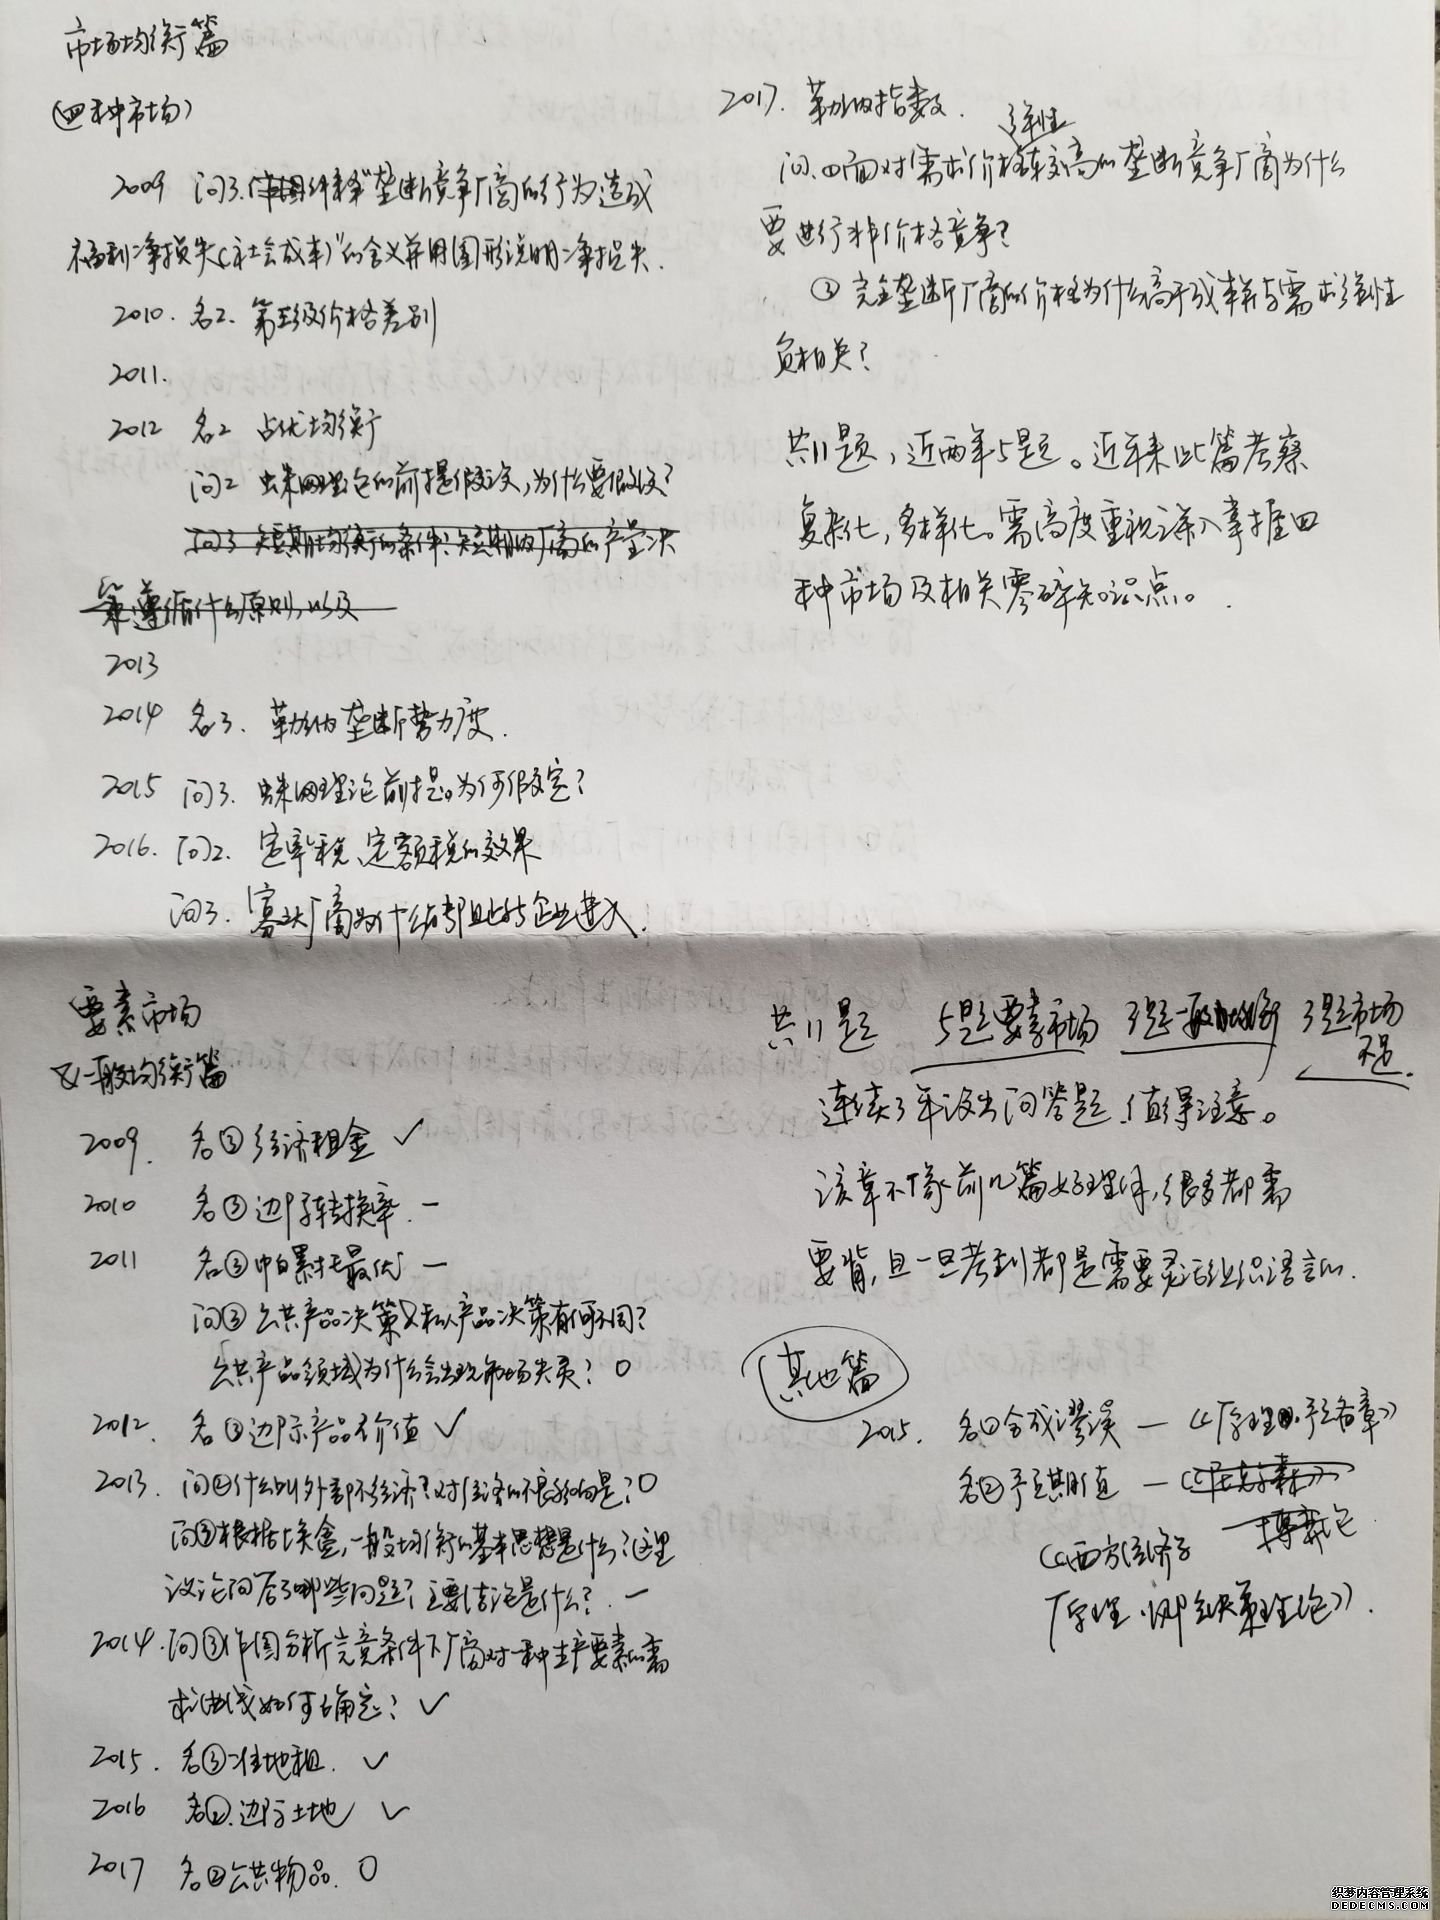 市场均衡篇
(四种市场)
2009 问3.作图解释“垄断竞争厂商的行为造成
福利净损失(社会成本)”的含义并用图形说明净损失.
2010. 名2. 第三级价格差别
2011.
2012 名2 占优均衡
问2 蛛网理论的前提假设,为什么要假设?
问3 短期均衡的条件?短期内厂商的产量决
策遵循什么原则,以及
2013
2014 名3. 勒纳垄断势力度.
2015 问3. 蛛网理论前提。为何假定?
2016. 问2. 定率税、定额税的效果
问3. 寡头厂商为什么有部阻止企业进入.
2017. 勒纳指数.
弹性
问.四面对需求价格较高的垄断竞争厂商为什么
要进行非价格竞争?
③ 完全垄断厂商的价格为什么高于成本并与需求弹性
负相关?
共11题,近两年5题。近年来此篇考察
复杂化,多样化。需高度重视深入掌握四
种市场及相关零碎知识点。
要素市场
及一般均衡篇
2009. 名③经济租金 ✓
2010 名③边际转换率. 一
2011 名③帕累托最优 一
问③公共产品决策又私人产品决策有何不同?
公共产品领域为什么会出现市场失灵? O
2012. 名③边际产品价值 ✓
2013. 问②什么叫外部不经济?对经济的不良影响是? O
问③根据埃盒,一般均衡的基本思想是什么?这里
议论问答了哪些问题?主要结论是什么? 一
2014.问③作图分析完竞条件下厂商对一种生产要素的需
求曲线如何确定? ✓
2015. 名③准地租. ✓
2016 名②.边际土地 ✓
2017 名②公共物品. O
共11题 5题要素市场 3题一般均衡 3题市场
不足.
连续3年没出问答题,值得注意。
该章不像前几篇好理解,很多都需
要背,且一旦考到都是需要灵活组织语言的.
其他篇
2015. 名①合成谬误 — 《厂管理.预备章》
名②预期值 —
博弈论
《西方经济学
厂管理.决策理论》.
织梦内容管理系统
DEDECMS.COM